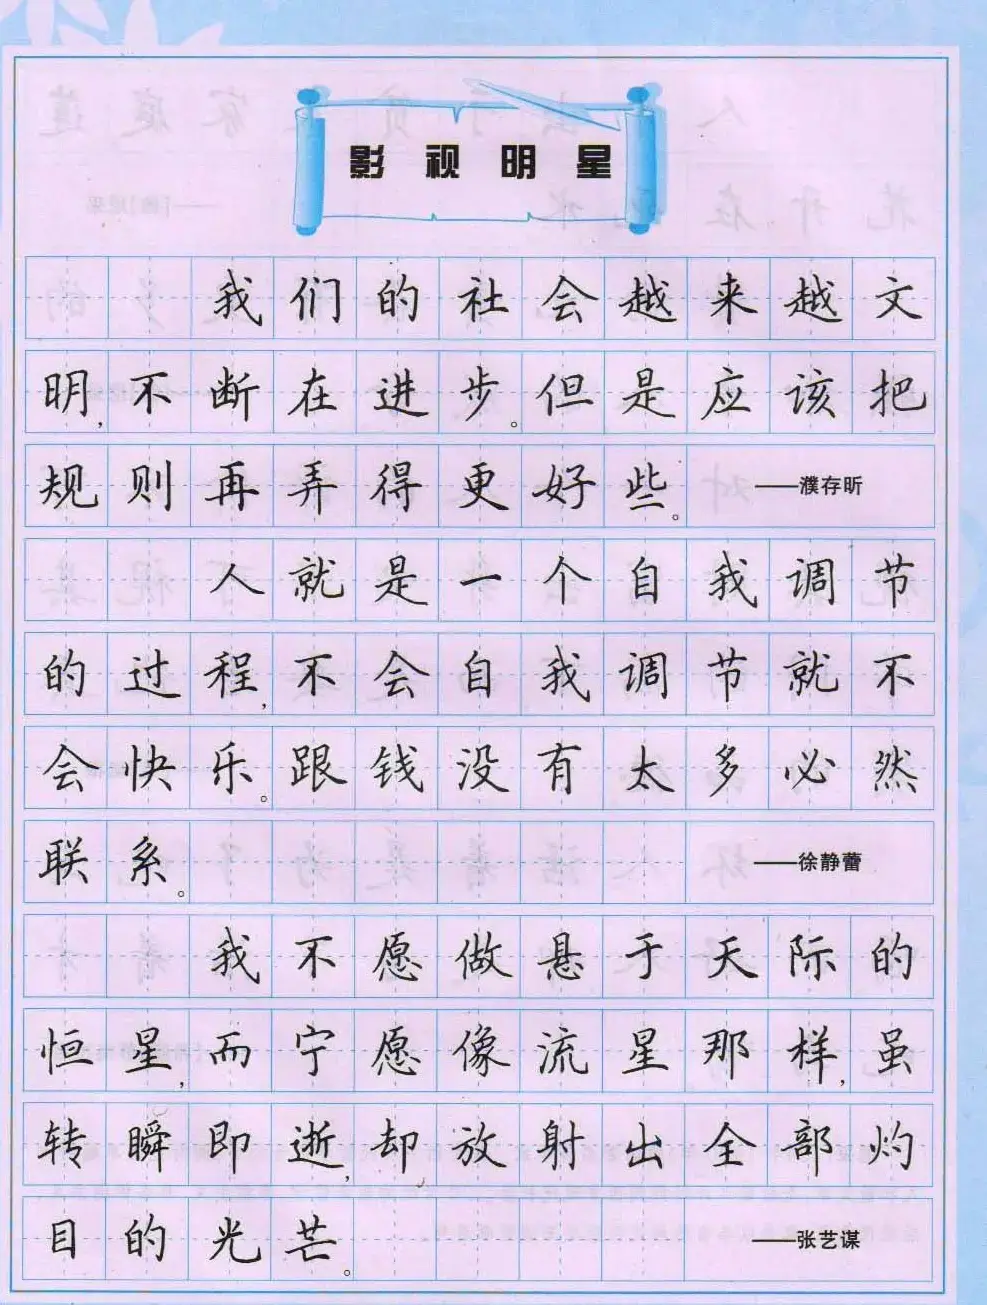 影视明星
我们的社会越来越文
明，不断在进步。但是应该把
规则再弄得更好些。——濮存昕
人就是一个自我调节
的过程，不会自我调节就不
会快乐。跟钱没有太多必然
联系。——徐静蕾
我不愿做悬于天际的
恒星，而宁愿像流星那样，虽
转瞬即逝，却放射出全部灼
目的光芒。——张艺谋